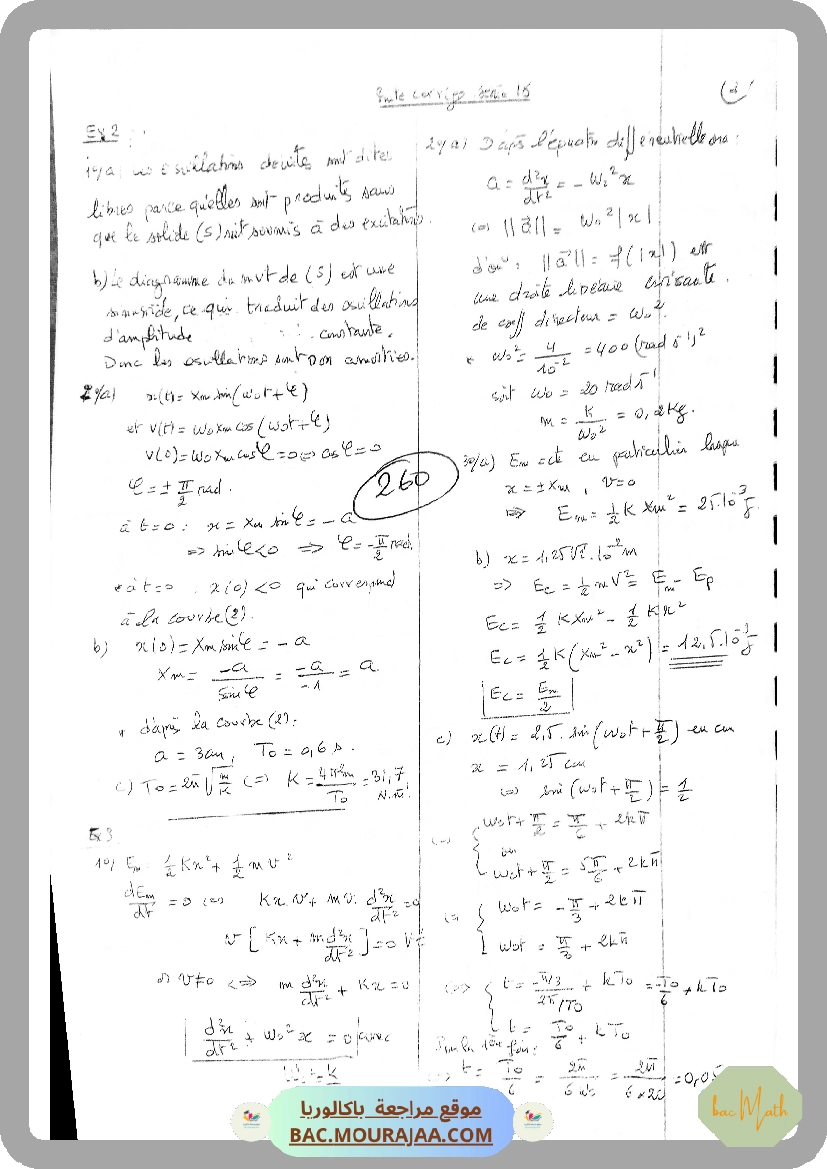 corrigé série 15
Ex2 :
1°/a) Les oscillations de sont dites
libres parce qu'elles sont produites sans
que le solide (S) soit soumis à des excitations.
b) Le diagramme du mvt de (S) est une
sinusoïde, ce qui traduit des oscillations
d'amplitude constante.
Donc les oscillations sont non amorties.
2°/a) x(t) = Xm sin(ω₀t + φ)
et v(t) = ω₀Xm cos(ω₀t + φ)
v(0) = ω₀Xm cosφ = 0 => cosφ = 0
φ = ± π/2 rad.
à t=0 : x = Xm sinφ = -a
=> sinφ<0 => φ = -π/2 rad.
* à t=0 x(0) <0 qui correspond
à la courbe (2).
b) x(0) = Xm sinφ = -a
Xm = -a/sinφ = -a/-1 = a
* d'après la courbe (2).
a = 3cm, T₀ = 0,6 s.
c) T₀ = 2π√(m/K) (=) K = 4π²m/T₀ = 31,7 N.m⁻¹
Ex3
1°/ Em 1/2 Kx² + 1/2 m v²
dEm/dt = 0 (=) Kx v + m v. d²x/dt² = 0
v [Kx + m d²x/dt²] = 0
v≠0 <=> m d²x/dt² + Kx = 0
d²x/dt² + ω₀² x = 0 avec
260
2°/a) D'après l'équation différentielle on a :
a = d²x/dt² = -ω₀² x
(=) ||a⃗|| = ω₀² |x|
d'où : ||a⃗|| = f(|x|) est
une droite linéaire croissante.
de coeff directeur = ω₀².
* ω₀² = 4/10⁻² = 400 (rad s⁻¹)²
soit ω₀ = 20 rad s⁻¹
m = K/ω₀² = 0,2 kg.
3°/a) Em = cte en particulier lorsque
x = ±Xm, v=0
=> Em = 1/2 K Xm² = 25.10⁻³ J.
b) x = 1,25√2.10⁻² m
=> Ec = 1/2 m V² = Em - Ep
Ec = 1/2 K Xm² - 1/2 K x²
Ec = 1/2 K (Xm² - x²) = 12,5.10⁻³ J
Ec = Em/2
c) x(t) = 2,5. sin(ω₀t + π/2) en cm
x = 1,25 cm
(=) sin(ω₀t + π/2) = 1/2
(=) { ω₀t + π/2 = π/6 + 2kπ
ou
ω₀t + π/2 = 5π/6 + 2kπ
(=) { ω₀t = -π/3 + 2kπ
ω₀t = π/3 + 2kπ
(=) { t = (-π/3)/(2π/T₀) + kT₀ = -T₀/6 + kT₀
t = T₀/6 + kT₀
Pour la 1ère fois :
t = T₀/6 = 2π/6ω₀ = 2π/6×20 = 0,05
موقع مراجعة باكالوريا
BAC.MOURAJAA.COM
bacMath